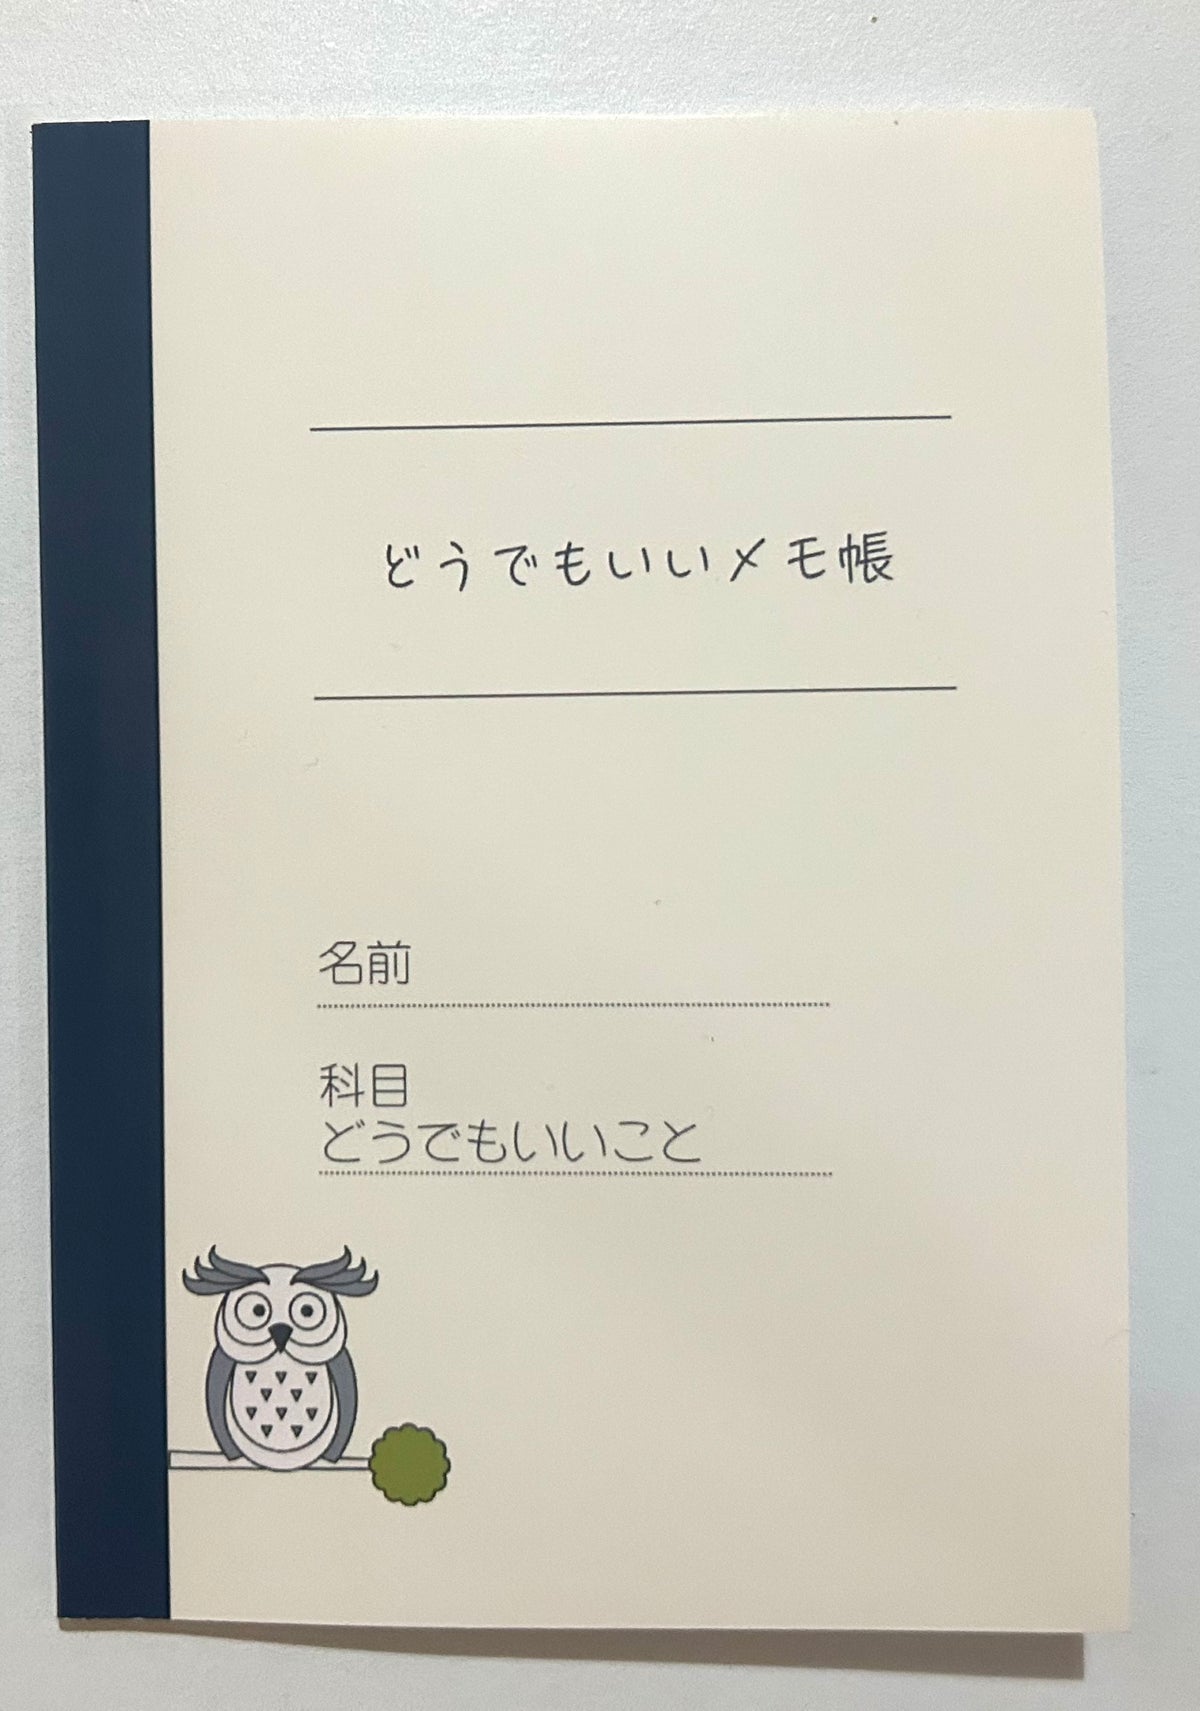 どうでもいいメモ帳
名前
科目
どうでもいいこと